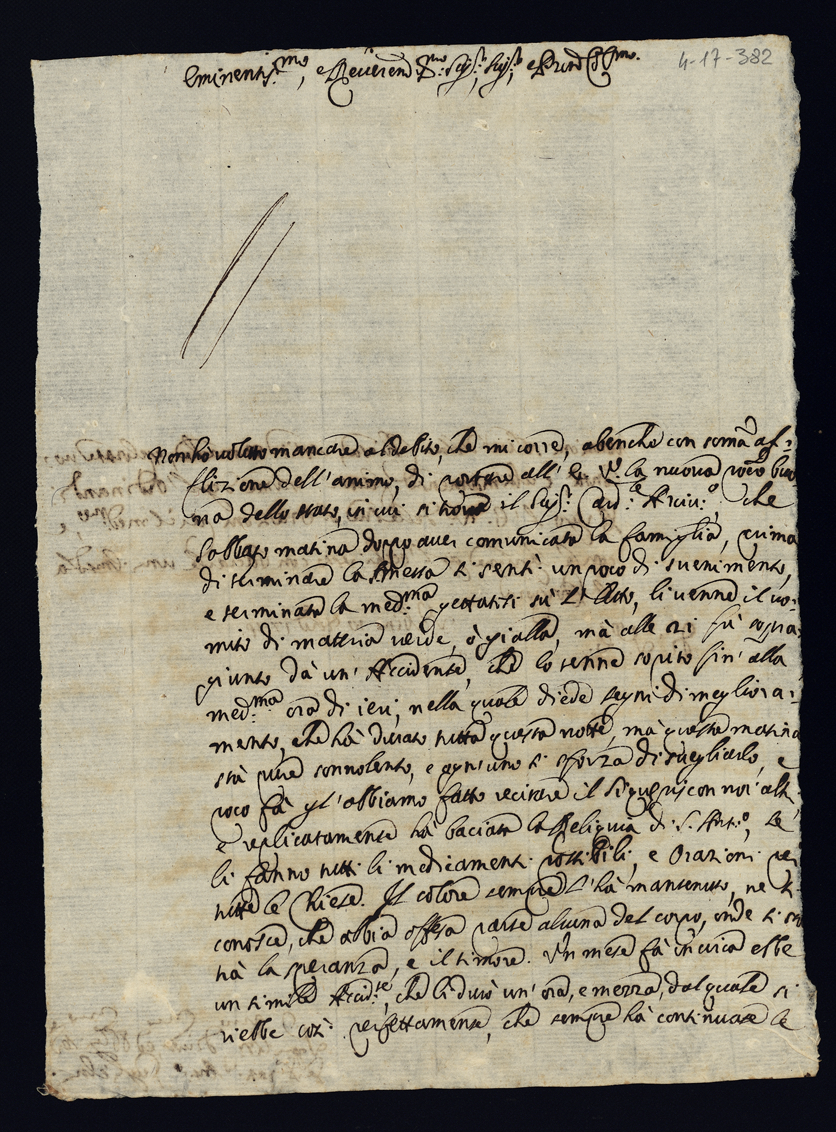 4-17-382
Eminentiss.mo, e Reverend.mo Sig.r Sig.r e Pron Col.mo
Non hò voluto mancare al debito, che mi corre, abenche con somã af=
flizione dell'animo, di portare all'E. V. la nuova poco buo
na dello stato, in cui si trova il Sig.r Card.e Arciv.o, che
Sabbato matina doppo aver comunicata la famiglia, prima
di terminare la Messa si sentì un poco di svenimento,
e terminata la med.ma gettatosi sù l'letto, li venne il vo=
mito di materia verde, ò gialla, mà alle 21 fù sopra=
giunto dà un'Accidente, che lo tenne sopito sin'alla
med.ma ora di ieri, nella quale diede segni di megliora=
mento, che hà durato tutta questa notte, mà questa matina
stà pure sonnolento, e ogn'uno si sforza di svegliarlo, e
poco fà gl'abbiamo fatto recitare il Si quæris con noi altri
e replicatamente hà baciata la Reliquia di S. Ant.o, se
li fanno tutti li medicamenti possibili, e Orazioni per
tutte le Chiese. Il colore sempre l'hà mantenuto, ne si
conosce, che abbia offesa parte alcuna del corpo, onde si stà
trà la speranza, e il timore. Un mese fà in circa ebbe
un simile Accid.te, che li durò un'ora, e mezza, dal quale si
riebbe così perfettamente, che sempre hà continuate le